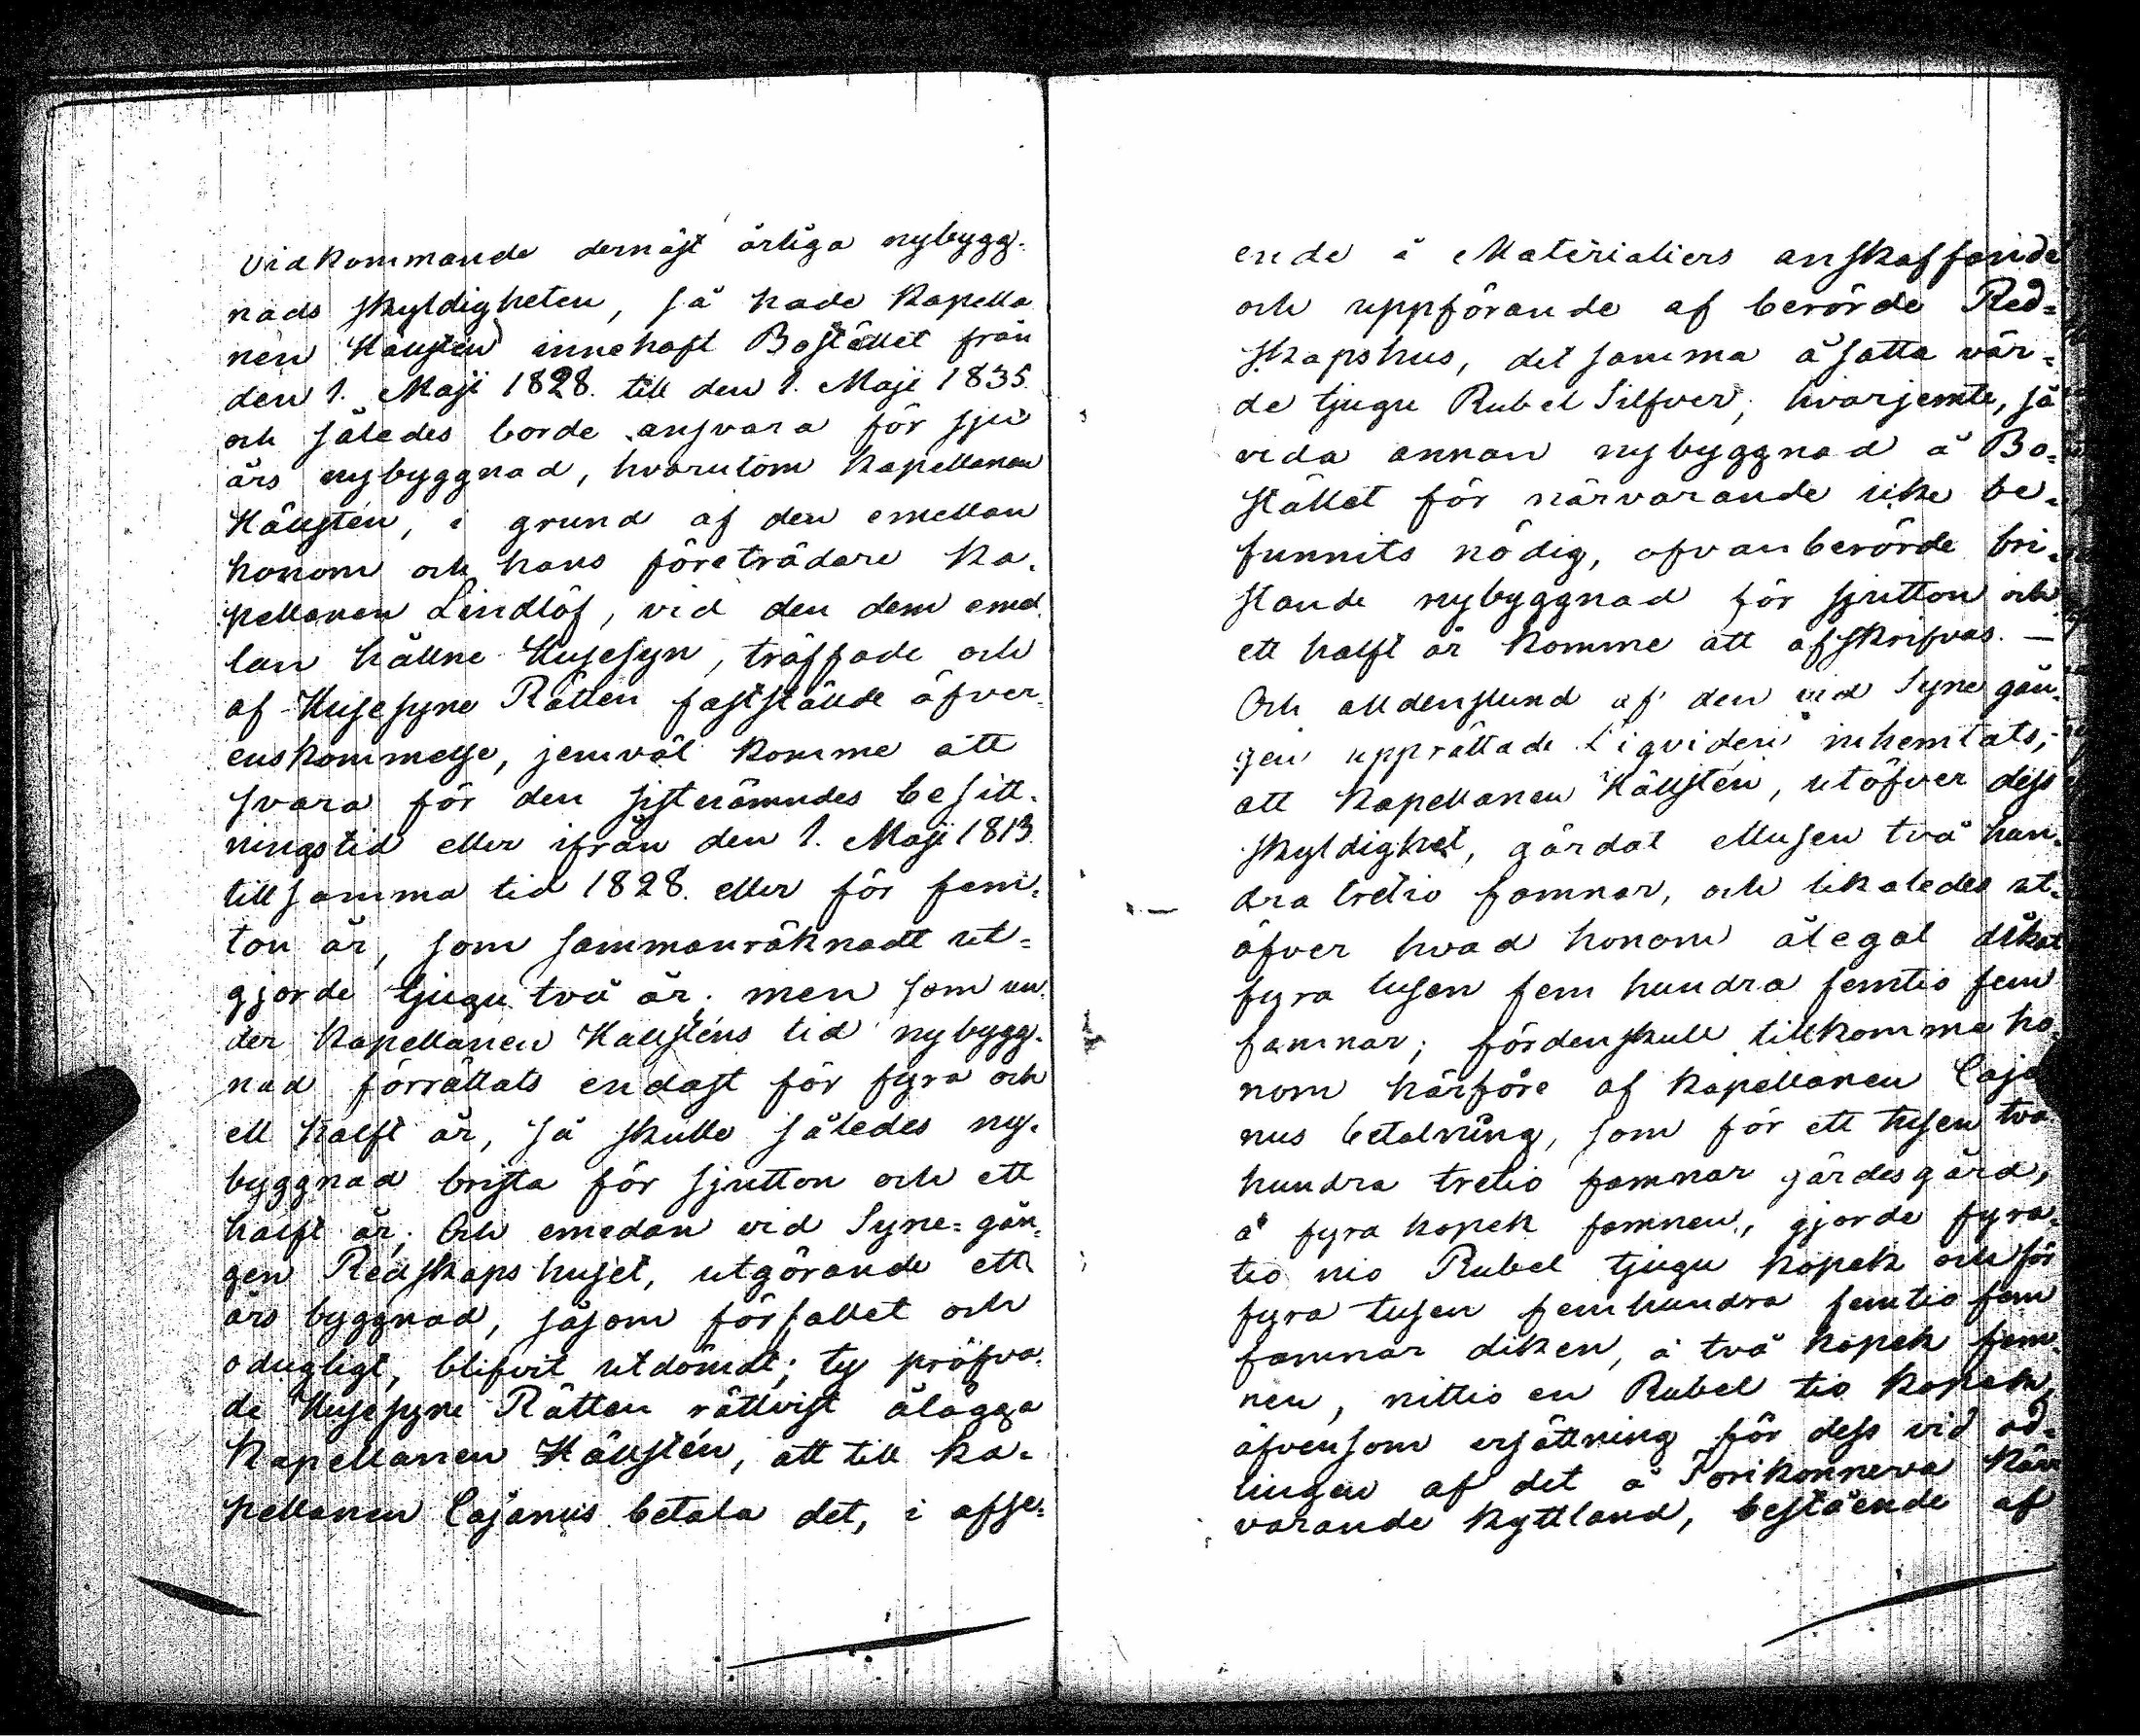 Vidkommande dernäst årliga nybygg=
nads skyldigheten, så hade Kapella
nen Hällstén innehaft Bostället från
den 1. Maji 1828. till den 1. Maji 1835.
och således borde ansvara för sju
års nybyggnad, hvarutom Kapellanen
Hällstén, i grund af den emellan
honom och hans företrädare Ka=
pellanen Lindlöf, vid den dem emel
lan hållne Husesyn, träffade och
af Husesyne Rätten fastställde öfver=
enskommelse, jemväl komme att
svara för den sistnämndes besitt=
ningstid eller ifrån den 1. Maji 1813.
till samma tid 1828. eller för fem=
ton år, som sammanräknadt ut=
gjorde tjugu två år. men som un=
der Kapellanen Hällsténs tid nybygg=
nad förrättats endast för fyra och
ett halft år, så skulle således ny=
byggnad brista för sjutton och ett
halft år; Och emedan vid Syne=gån=
gen Redskapshuset, utgörande ett
års byggnad, såsom förfallet och
odugligt, blifvit utdömdt; ty pröfva=
de Husesyne Rätten rättvist ålägga
Kapellanen Hällstén, att till Ka=
pellanen Cajanus betala det, i afse=
ende å Materialiers anskaffande
och uppförande af berörde Red=
skapshus, det samma åsatta vär=
de tjugu Rubel Silfver; hvarjemte, så
vida annan nybyggnad å Bo=
stället för närvarande icke be=
funnits nödig, ofvanberörde bri=
stande nybyggnad för sjutton och
ett halft år komme att afskrifvas. —
Och alldenstund af den vid Syne gån=
gen upprättade Liqviden inhemtats,
att Kapellanen Hällstén, utöfver dess
skyldighet, gärdat ettusen två hun=
dra tretio famnar, och likaledes ut=
öfver hvad honom ålegat dikat
fyra tusen fem hundra femtio fem
famnar; fördenskull tillkomme ho=
nom härföre af Kapellanen Caja
nus betalning, som för ett tusen två
hundra tretio famnar gärdesgård,
à fyra kopek famnen, gjorde fyra=
tio nio Rubel tjugu kopek och för
fyra tusen femhundra femtio fem
famnar diken, à två kopek fam=
nen, nittio en Rubel tio kopek,
äfvensom ersättning för dess vid od=
lingen af det å Torikonneva kärr
varande kyttland, bestående af